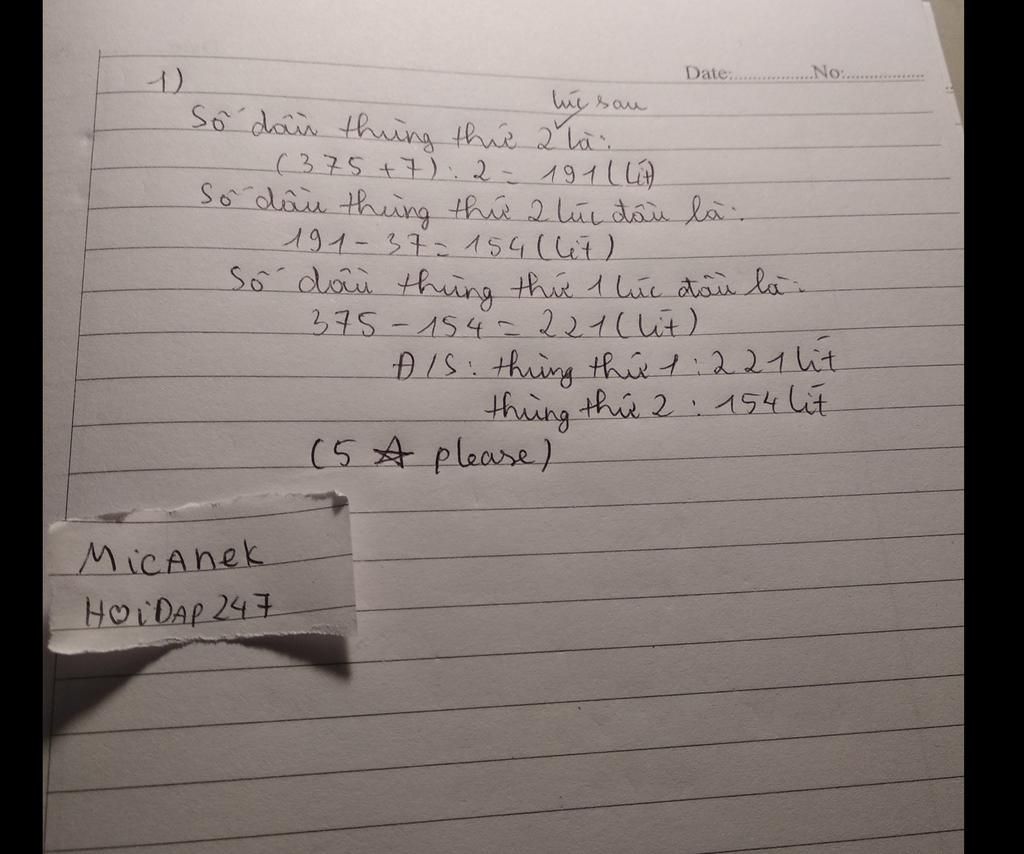 Date:................No:..................
1)
lúc sau
Số dầu thùng thứ 2 là:
(375+7):2= 191(lít)
Số dầu thùng thứ 2 lúc đầu là:
191-37=154(lít)
Số dầu thùng thứ 1 lúc đầu là:
375-154=221(lít)
Đ/S: thùng thứ 1: 221 lít
thùng thứ 2: 154 lít
(5 ☆ please)
MicAnek
HOiDAP247